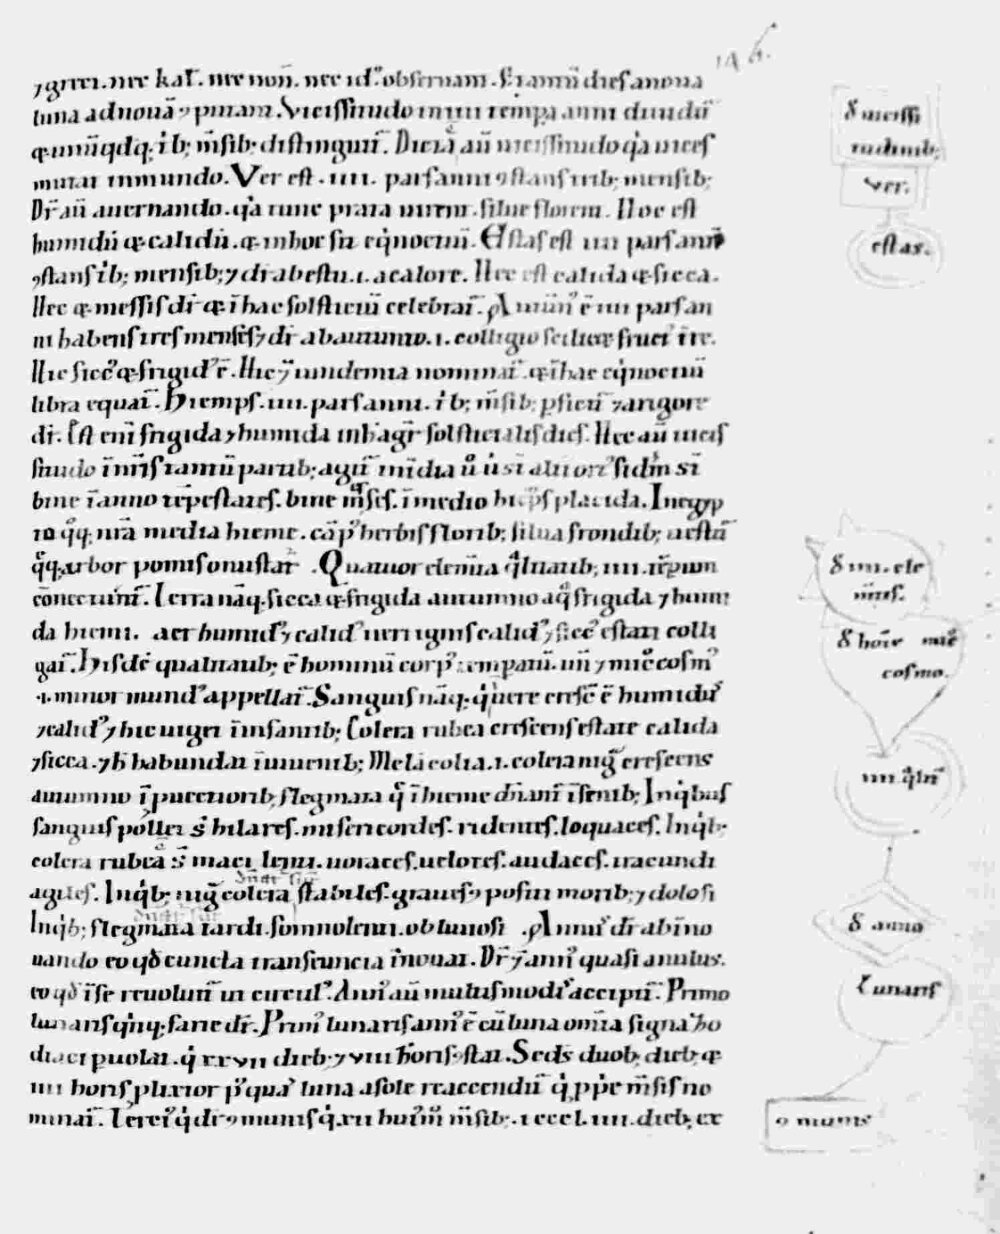 146.
⁊greci. nec kał. nec non̄. nec id᷒ obseruant. S; tam̄ū dies a noua
luna ad nouā ꝯputant. Vicissitudo iiiior tempa anni dum diī
q̄ unūqdq; ib; m̄sib; distinguūt. Dicta aū uicissitudo qa uices
mutat in mundo. Ver est .iiii. pars anni ꝯstans trib; mensib;
Dr̄ aū a uernando. qa tunc prata uirent. silue florent. Hoc est
humidū & calidū. & in hoc fit eq̇noctiū. Estas est iiii pars anni
ꝯstans ib; mensib; ⁊ dr̄ ab estu .i. a calore. Hec est calida & sicca.
Hec & messis dr̄ & ī hac solsticiū celebrat̄. Autūn᷒ ē iiii pars an
ni habens tres menses ⁊ dr̄ ab autumno .i. collegio
Hic sicc᷒ & frigid᷒ ē. Hic ⁊ uindemia nominat̄. & ī hac eq̇noctiū
libra equat̄. Hiemps .iiii. pars anni. ib; m̄sib; ꝑficit̄ ⁊ angore
dr̄. Est eni frigida ⁊ humida in hac fit solsticialis dies. Hec aū uicis
situdo
bine ī anno tēpestates. bine m̄ses. ī medio placida. In egyp
to qq; media hieme. cāp᷒ herbis florib; silua frondib; uestit̄
qq; arbor pomis onustat̄ . Quatuor elem̄ta q̇litatib; iiii. tēpon
conectunt̄. Terra nāq. sicca & frigida autumno aq̇ frigida ⁊ humi
da hiemi. aer humid᷒ ⁊ calid᷒ ueri ignis calid᷒ ⁊ sicc᷒ estati colli
gat̄. Hisdē qualitatib; ē hominū corp᷒ temperatū. un̄ ⁊ mic᷒cosm᷒
.i. minor mund᷒ appellat̄. Sanguis nāq; q̇ uere cresc̄ ē humid᷒
⁊ calid᷒ ⁊ hic uiget ī infantib; Colera rubea crescens estate calida
⁊ sicca. ⁊ h̄ habundat in iuuenib; Melācolia .i. colera nig̊ crescens
autumno ī puectiorib; flegmata q̇ ī hieme dn̄ant̄ ī senib; In q̇bus
sanguis pollet s̄ hilares. misericordes. ridentes. loquaces. In q̇b;
colera rubea s̄ maci lenti. uoraces. ueloces. audaces. iracundi
agiles. In q̇b; nig̊ colera stabiles. graues ꝯpositi morib; ⁊ dolosi
In q̇b; flegmata tardi. somnolenti. obliuiosi . Ann᷒ dr̄ ab īno
uando eo qd̄ cuncta transeuncia īnouat. Dr̄ ⁊ ann᷒ quasi anulus.
eo qd̄ ī se reuoluit̄ in circul᷒. Ann᷒ aū multis modis accipit̄. Primo
lunaris q̇nq; sane dr̄. Prim᷒ lunaris ann᷒ ē cū luna omīa signa ho
diaci puolat. q̇ xxvii dieb; ⁊ viii horis ꝯstat. Seds duob; dieb; &
iiii horis plixior p᷒ qua᷒ luna a sole reaccendit̄ q̇ ppe m̄sis no
minat̄. Terci᷒ q̇ dr̄ ꝯmunis q̇ xii hui᷒m̄ m̄sib; . i cccl.iiii. dieb; ex
δ uicissi
tudinib;
Ver.
estas.
δ iiii. ele
m̄tis.
δ hoīe mic᷒
cosmo.
iiii q̇lit̄
δ anno
Lunaris
ꝯmunis